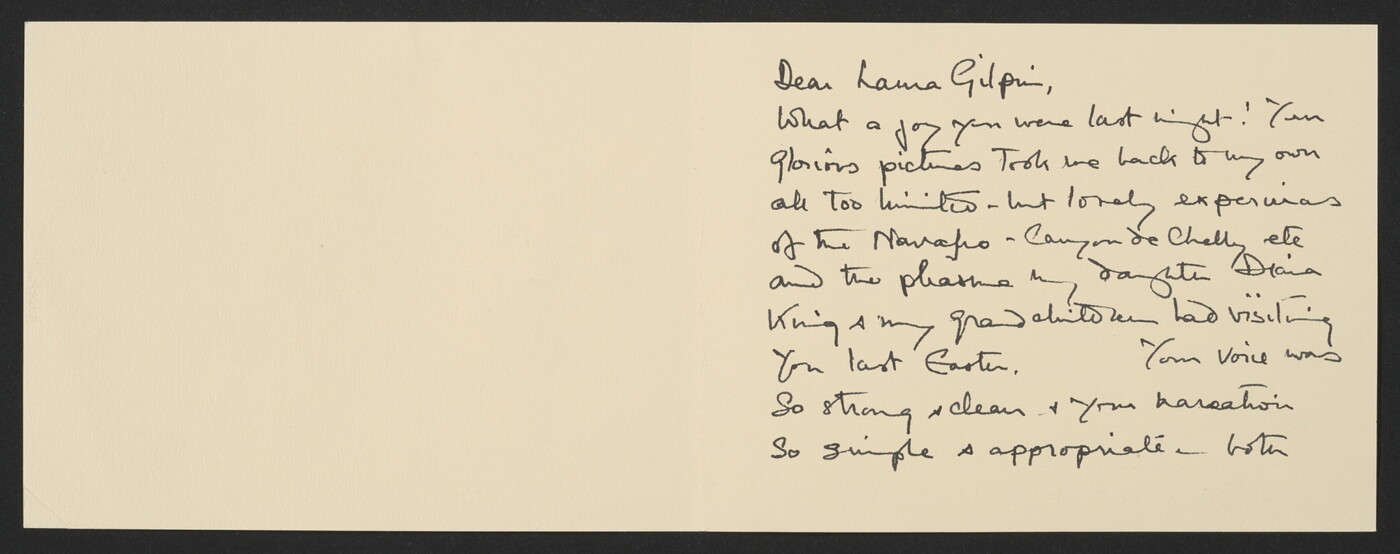 Dear Laura Gilpin,
What a joy you were last night! Your
glorious pictures took me back to my own
all too limited - but lovely experiences
of the Navajo - Canyon de Chelly etc
and the pleasure my daughter Diana
King & my grandchildren had visiting
you last Easter. Your voice was
so strong & clear & your narration
so simple & appropriate - both